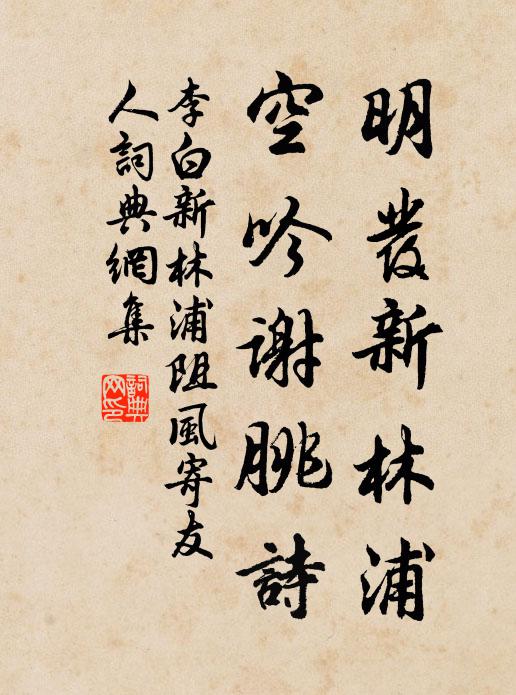 明發新林浦
空吟謝脁詩
李白新林浦阻風寄友
人詞典網集
詞典
网印